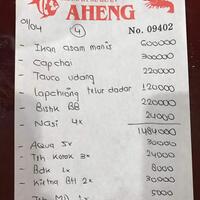 AHENG
01/04 (4) No. 09402
- Ikan asam manis 600000
- Capchai 300000
- Tauco udang 220000
- Lapchiong telur dadar 120000
- Bistik BB 220000
- Nasi 4x 24000
1484000
- Aqua 5x 30000
- Teh Kotak 3x 24000
- Bdk 1x 8000
- Kietna BH 2x 30000
5000